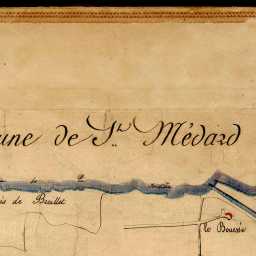 une de S.t Médard
is de Brillet
le Boussé